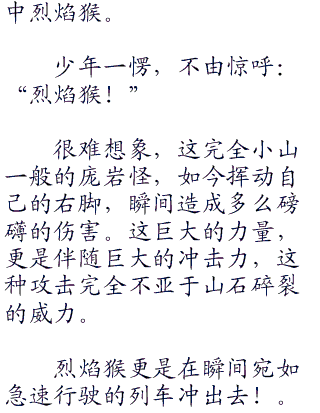 中烈焰猴。
少年一愣，不由惊呼：
“烈焰猴！”
很难想象，这完全小山
一般的庞岩怪，如今挥动自
己的右脚，瞬间造成多么磅
礴的伤害。这巨大的力量，
更是伴随巨大的冲击力，这
种攻击完全不亚于山石碎裂
的威力。
烈焰猴更是在瞬间宛如
急速行驶的列车冲出去！。